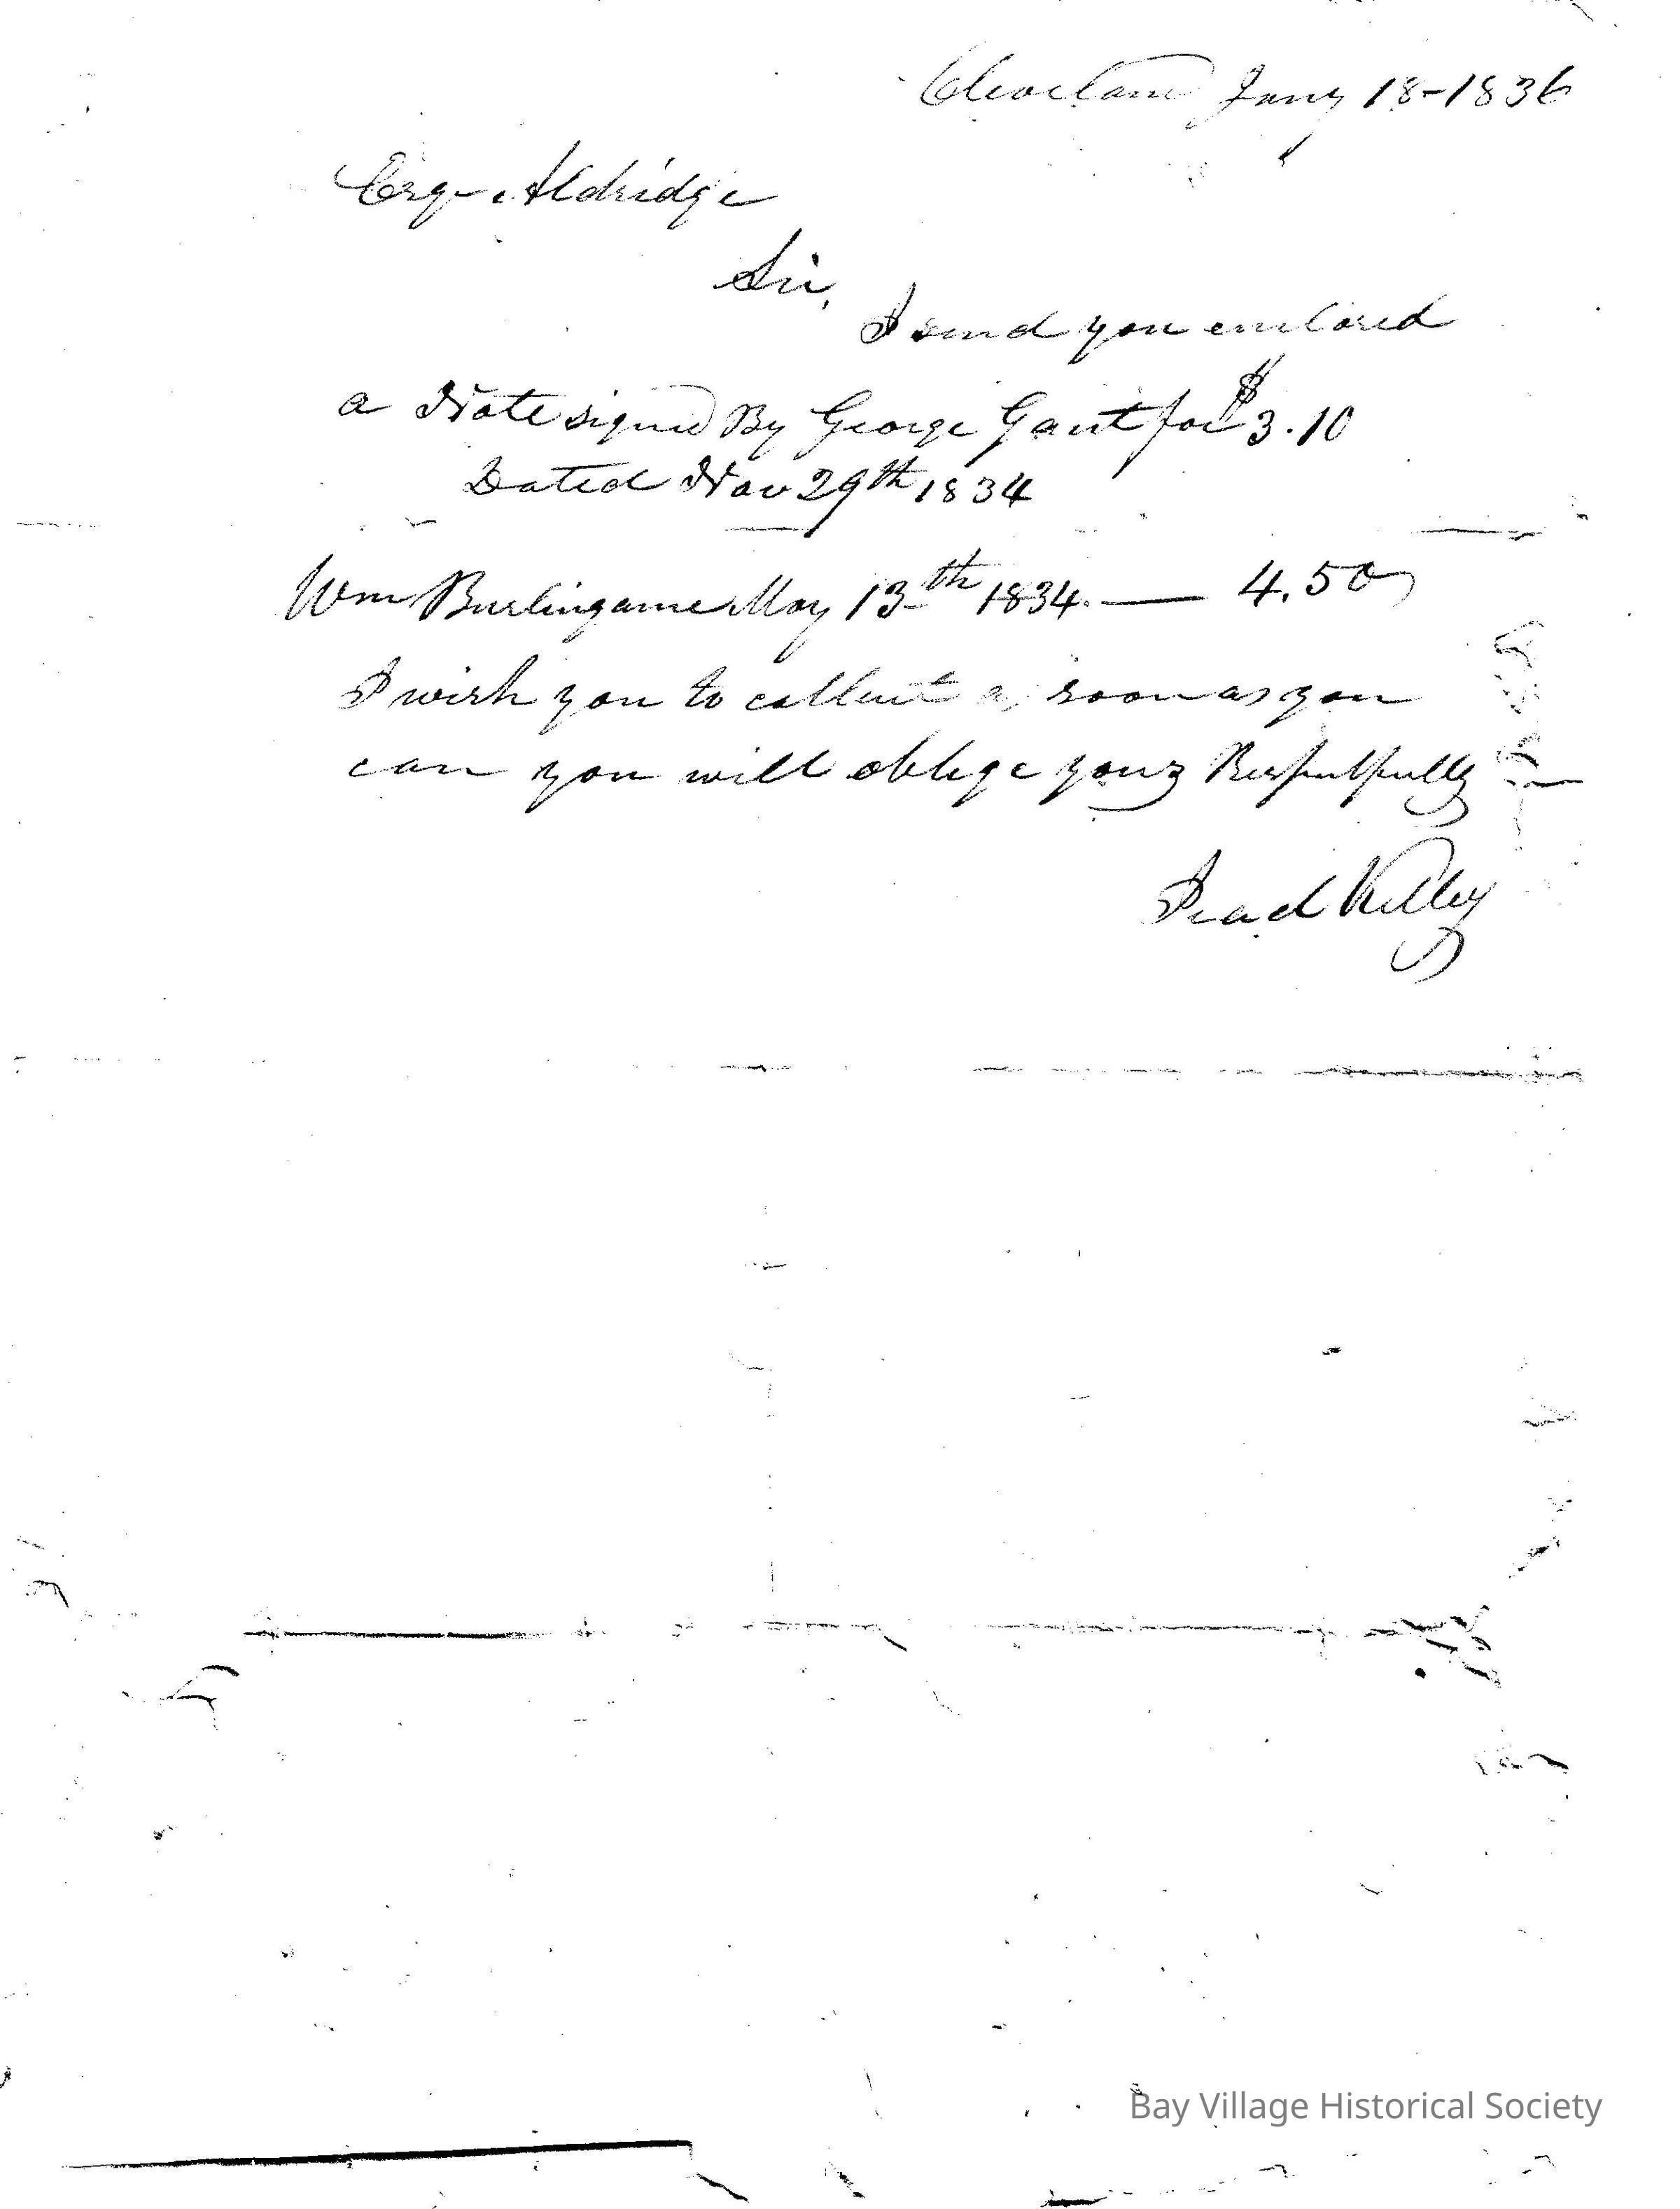 Cleveland Jany 18-1836
Esqr Aldridge
Sir,
I send you enclosed
a Note signed By George Gant for $3.10
Dated Nov 29th 1834
Wm Burlingame May 13th 1834. — 4.50
I wish you to collect as soon as you
can you will oblige yours Respectfully
Irad Kelley
Bay Village Historical Society